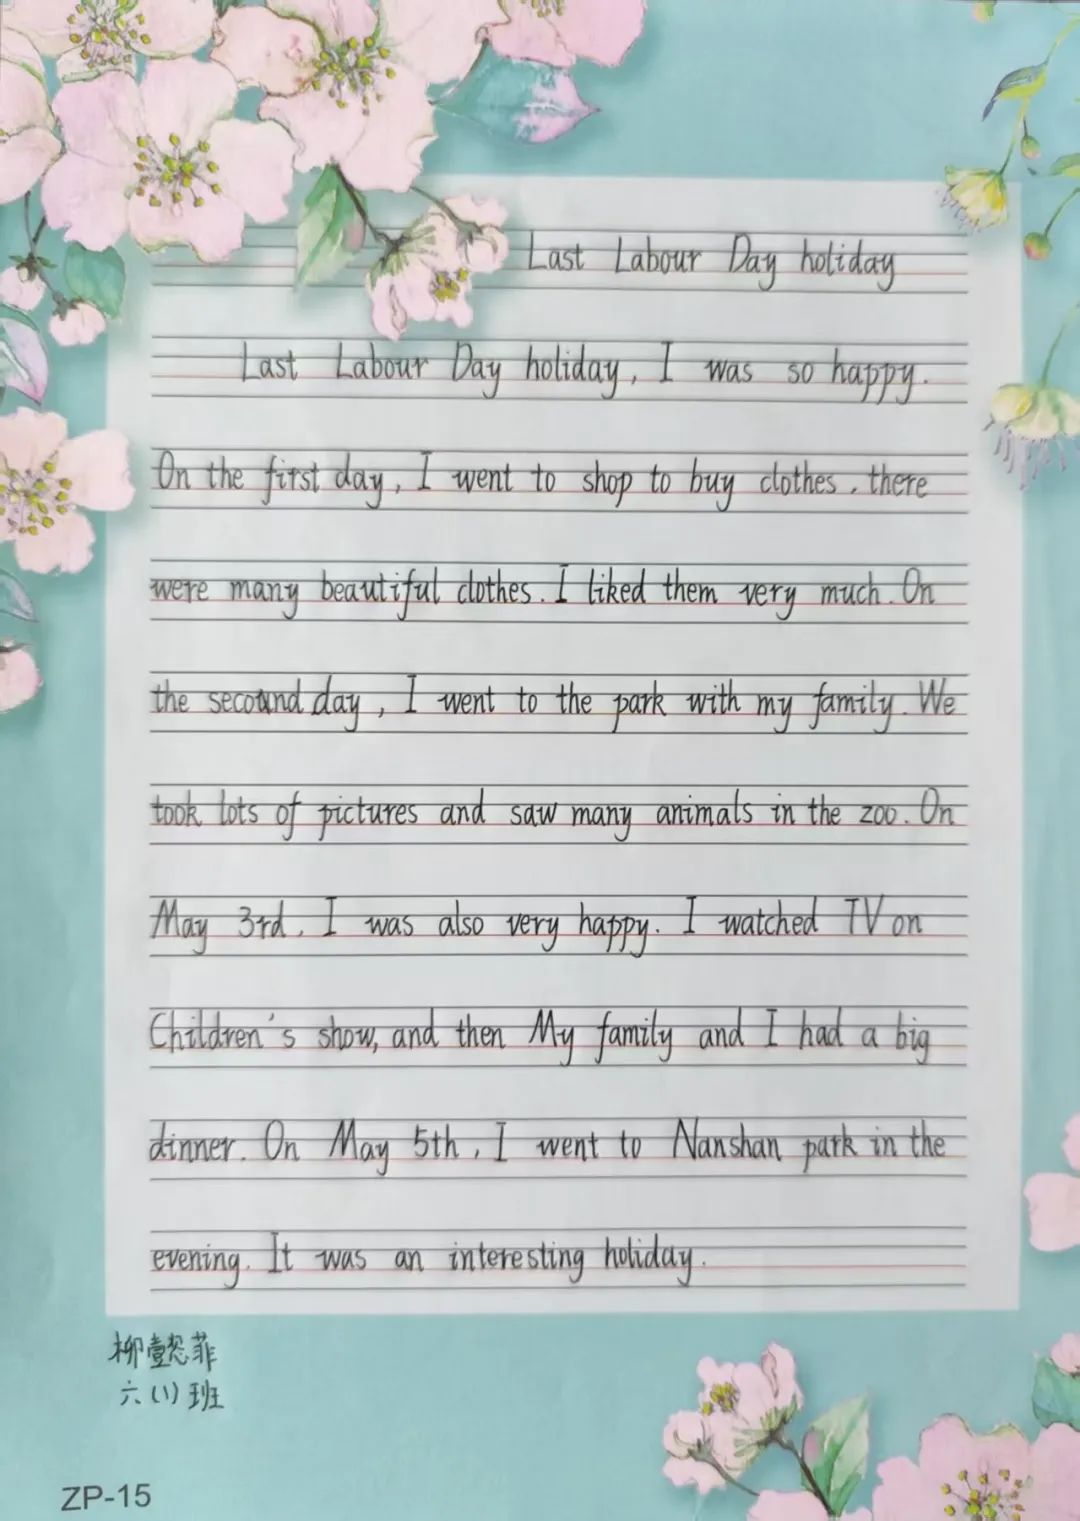 Last Labour Day holiday
Last Labour Day holiday, I was so happy.
On the first day, I went to shop to buy clothes, there
were many beautiful clothes. I liked them very much. On
the secound day, I went to the park with my family. We
took lots of pictures and saw many animals in the zoo. On
May 3rd, I was also very happy. I watched TV on
Children's show, and then My family and I had a big
dinner. On May 5th, I went to Nanshan park in the
evening. It was an interesting holiday.
柳懿菲
六(1)班
ZP-15